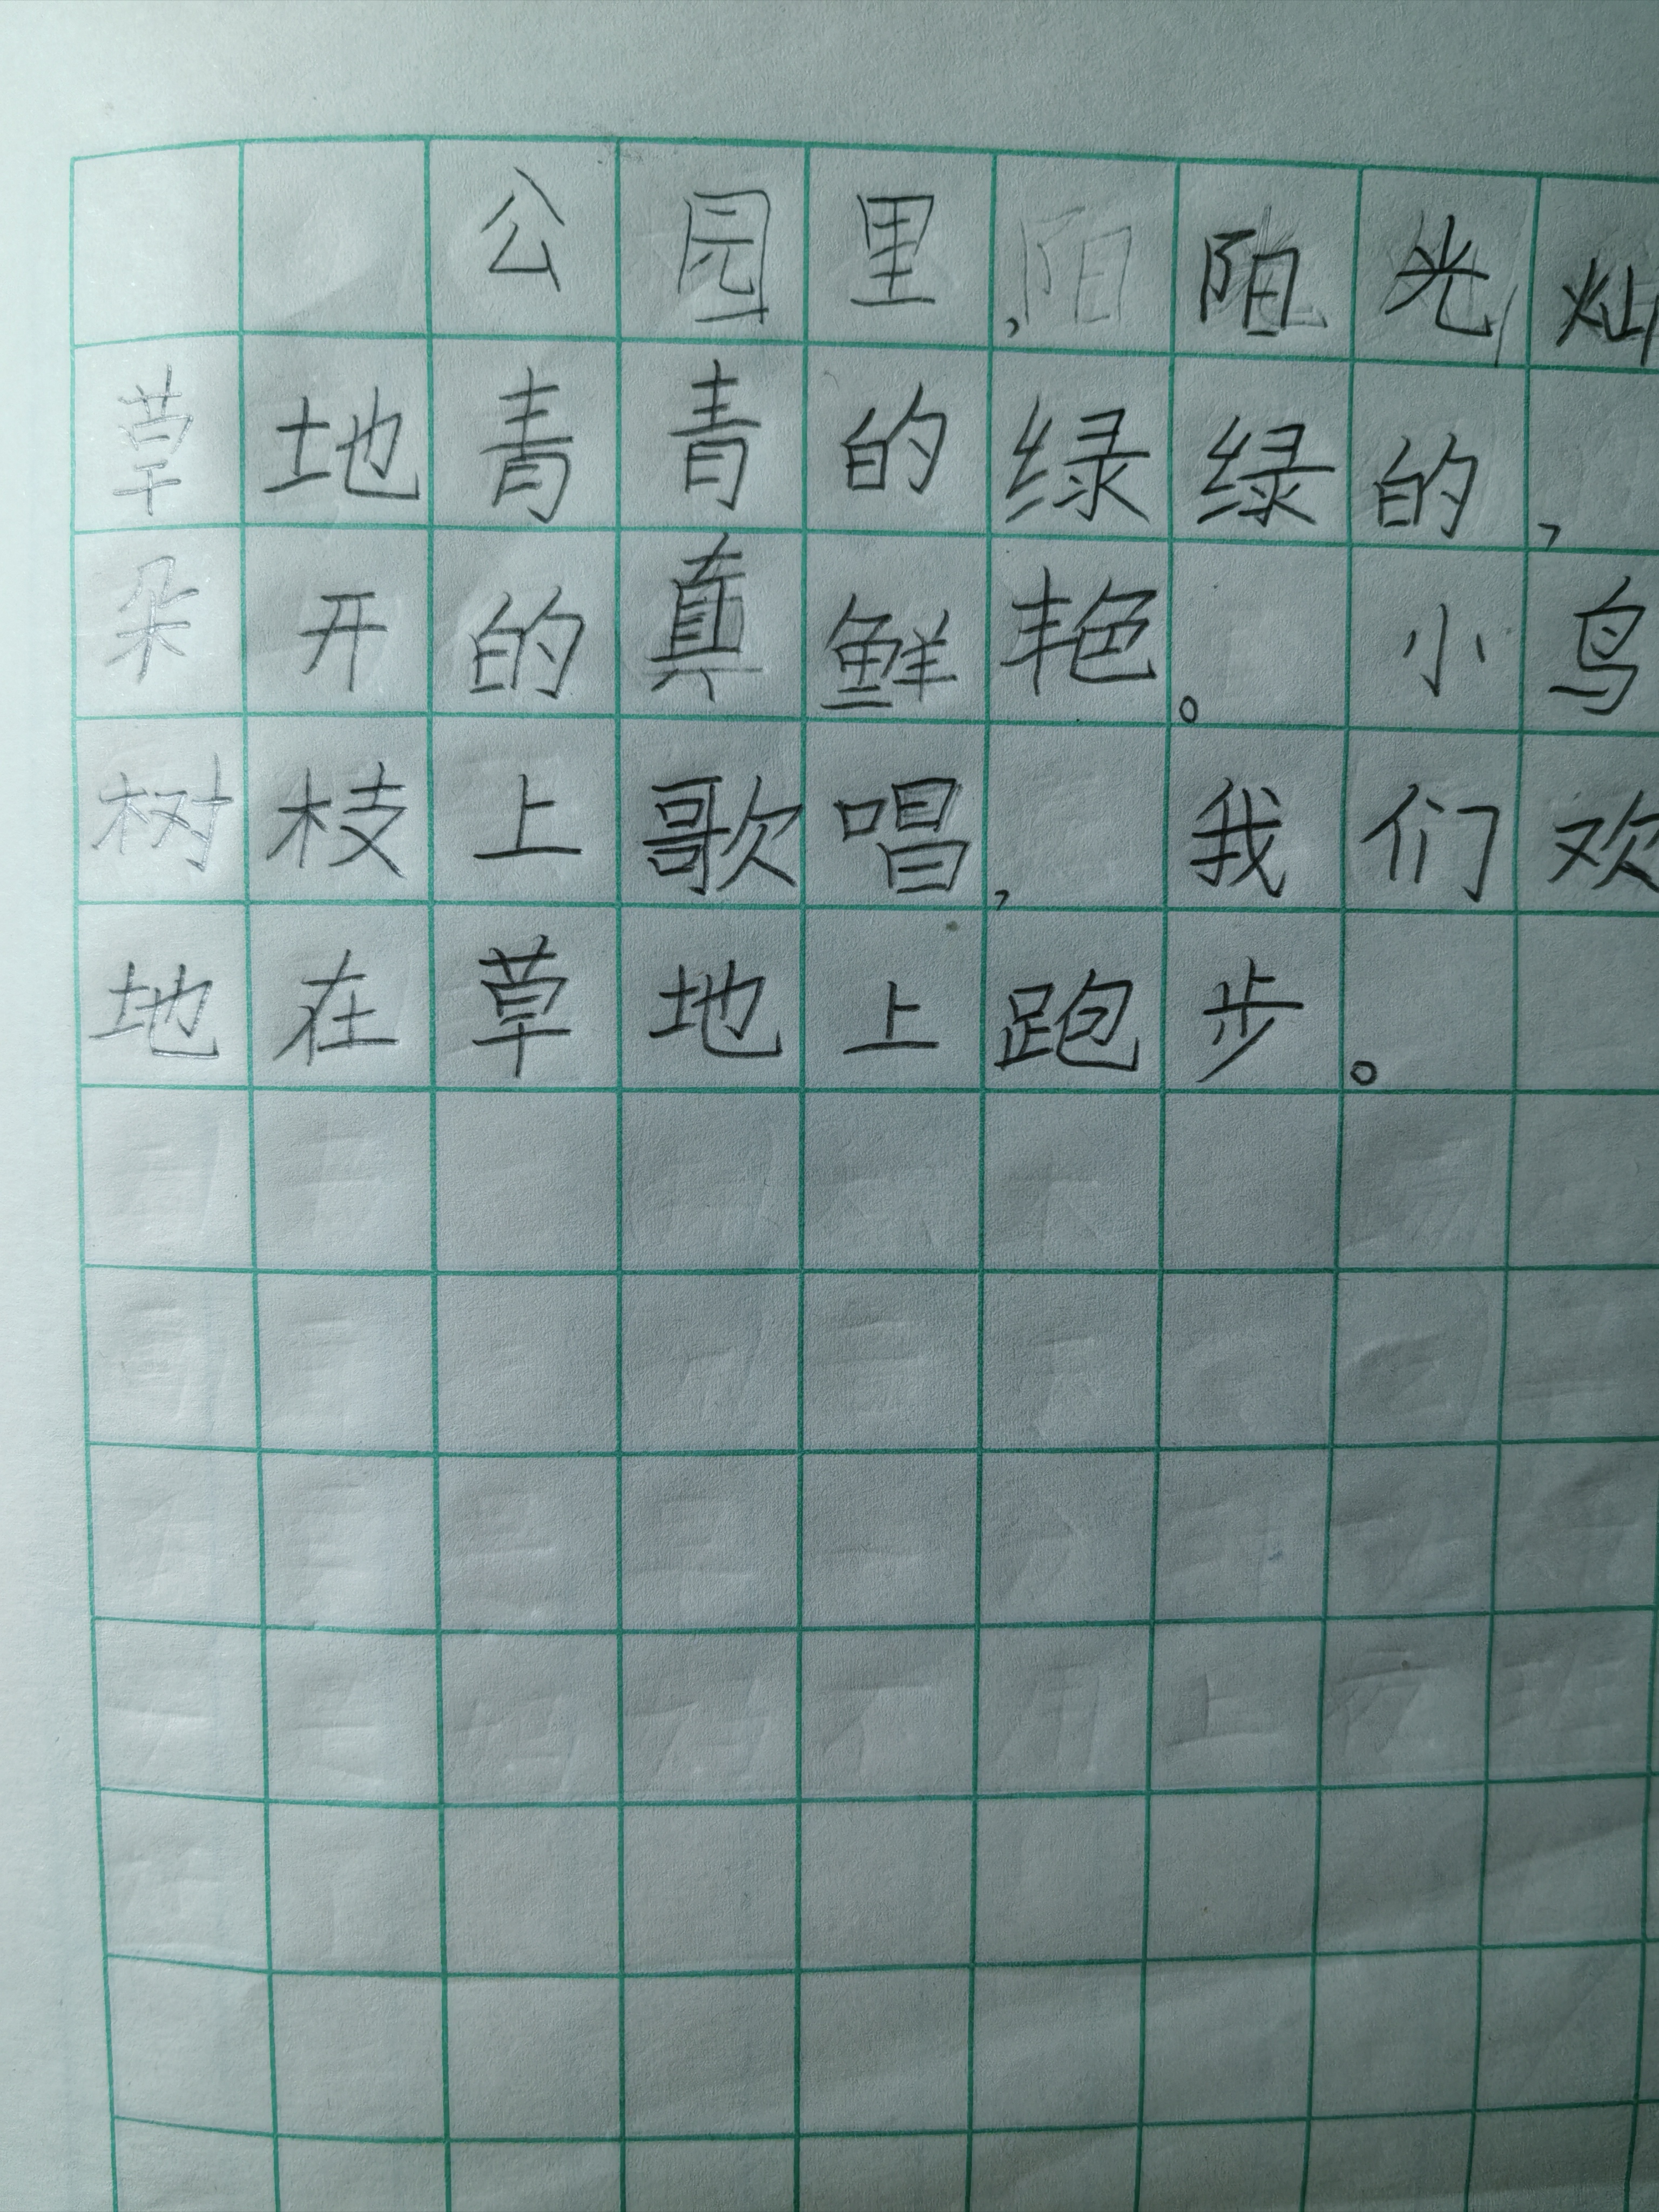 公园里,阳光灿
草地青青的绿绿的,
朵开的真鲜艳。小鸟
树枝上歌唱,我们欢
地在草地上跑步。